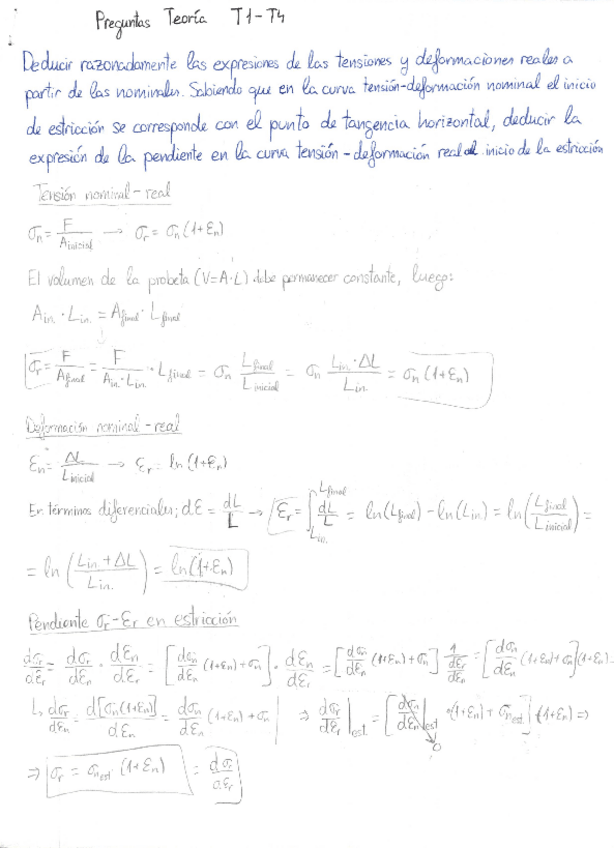 Preguntas Teoría T1-T4
Deducir razonadamente las expresiones de las tensiones y deformaciones reales a
partir de las nominales. Sabiendo que en la curva tensión-deformación nominal el inicio
de estricción se corresponde con el punto de tangencia horizontal, deducir la
expresión de la pendiente en la curva tensión-deformación real al inicio de la estricción
Tensión nominal-real
σn = F/Ainicial → σr = σn (1+εn)
El volumen de la probeta (V=A·L) debe permanecer constante, luego:
Ain. · Lin. = Afinal · Lfinal
σr = F/Afinal = F/(Ain. · Lin.) · Lfinal = σn Lfinal/Linicial = σn (Lin. · ΔL)/Lin. = σn (1+εn)
Deformación nominal-real
εn = ΔL/Linicial → εr = ln(1+εn)
En términos diferenciales; dε = dL/L → εr = ∫Lin.^Lfinal dL/L = ln(Lfinal) - ln(Lin) = ln(Lfinal/Linicial) =
= ln((Lin. + ΔL)/Lin.) = ln(1+εn)
Pendiente σr-εr en estricción
dσr/dεr = dσr/dεn · dεn/dεr = [dσn/dεn (1+εn) + σn] · dεn/dεr = [dσn/dεn (1+εn) + σn] 1/(dεr/dεn) = [dσn/dεn (1+εn) + σn] (1+εn) =
↳ dσr/dεn = d[σn(1+εn)]/dεn = dσn/dεn (1+εn) + σn | ⇒ dσr/dεr|est. = [dσn/dεn|est · (1+εn) + σnest.] · (1+εn) ⇒
0
⇒ σr = σnest. (1+εn) = dσ/dεr